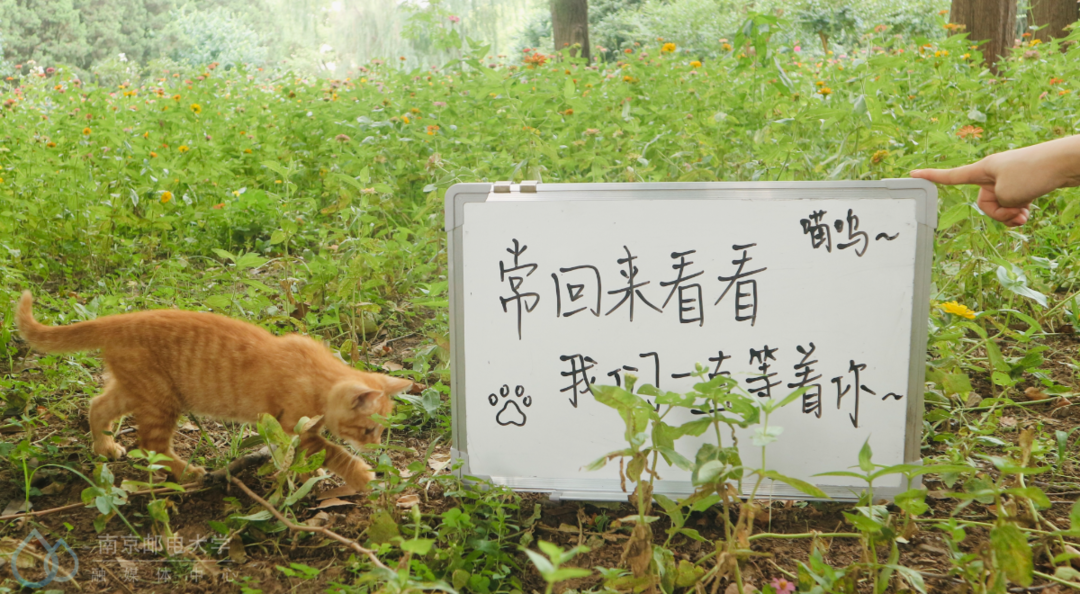 喵呜~
常回来看看
我们一直等着你~
南京邮电大学
融媒体中心